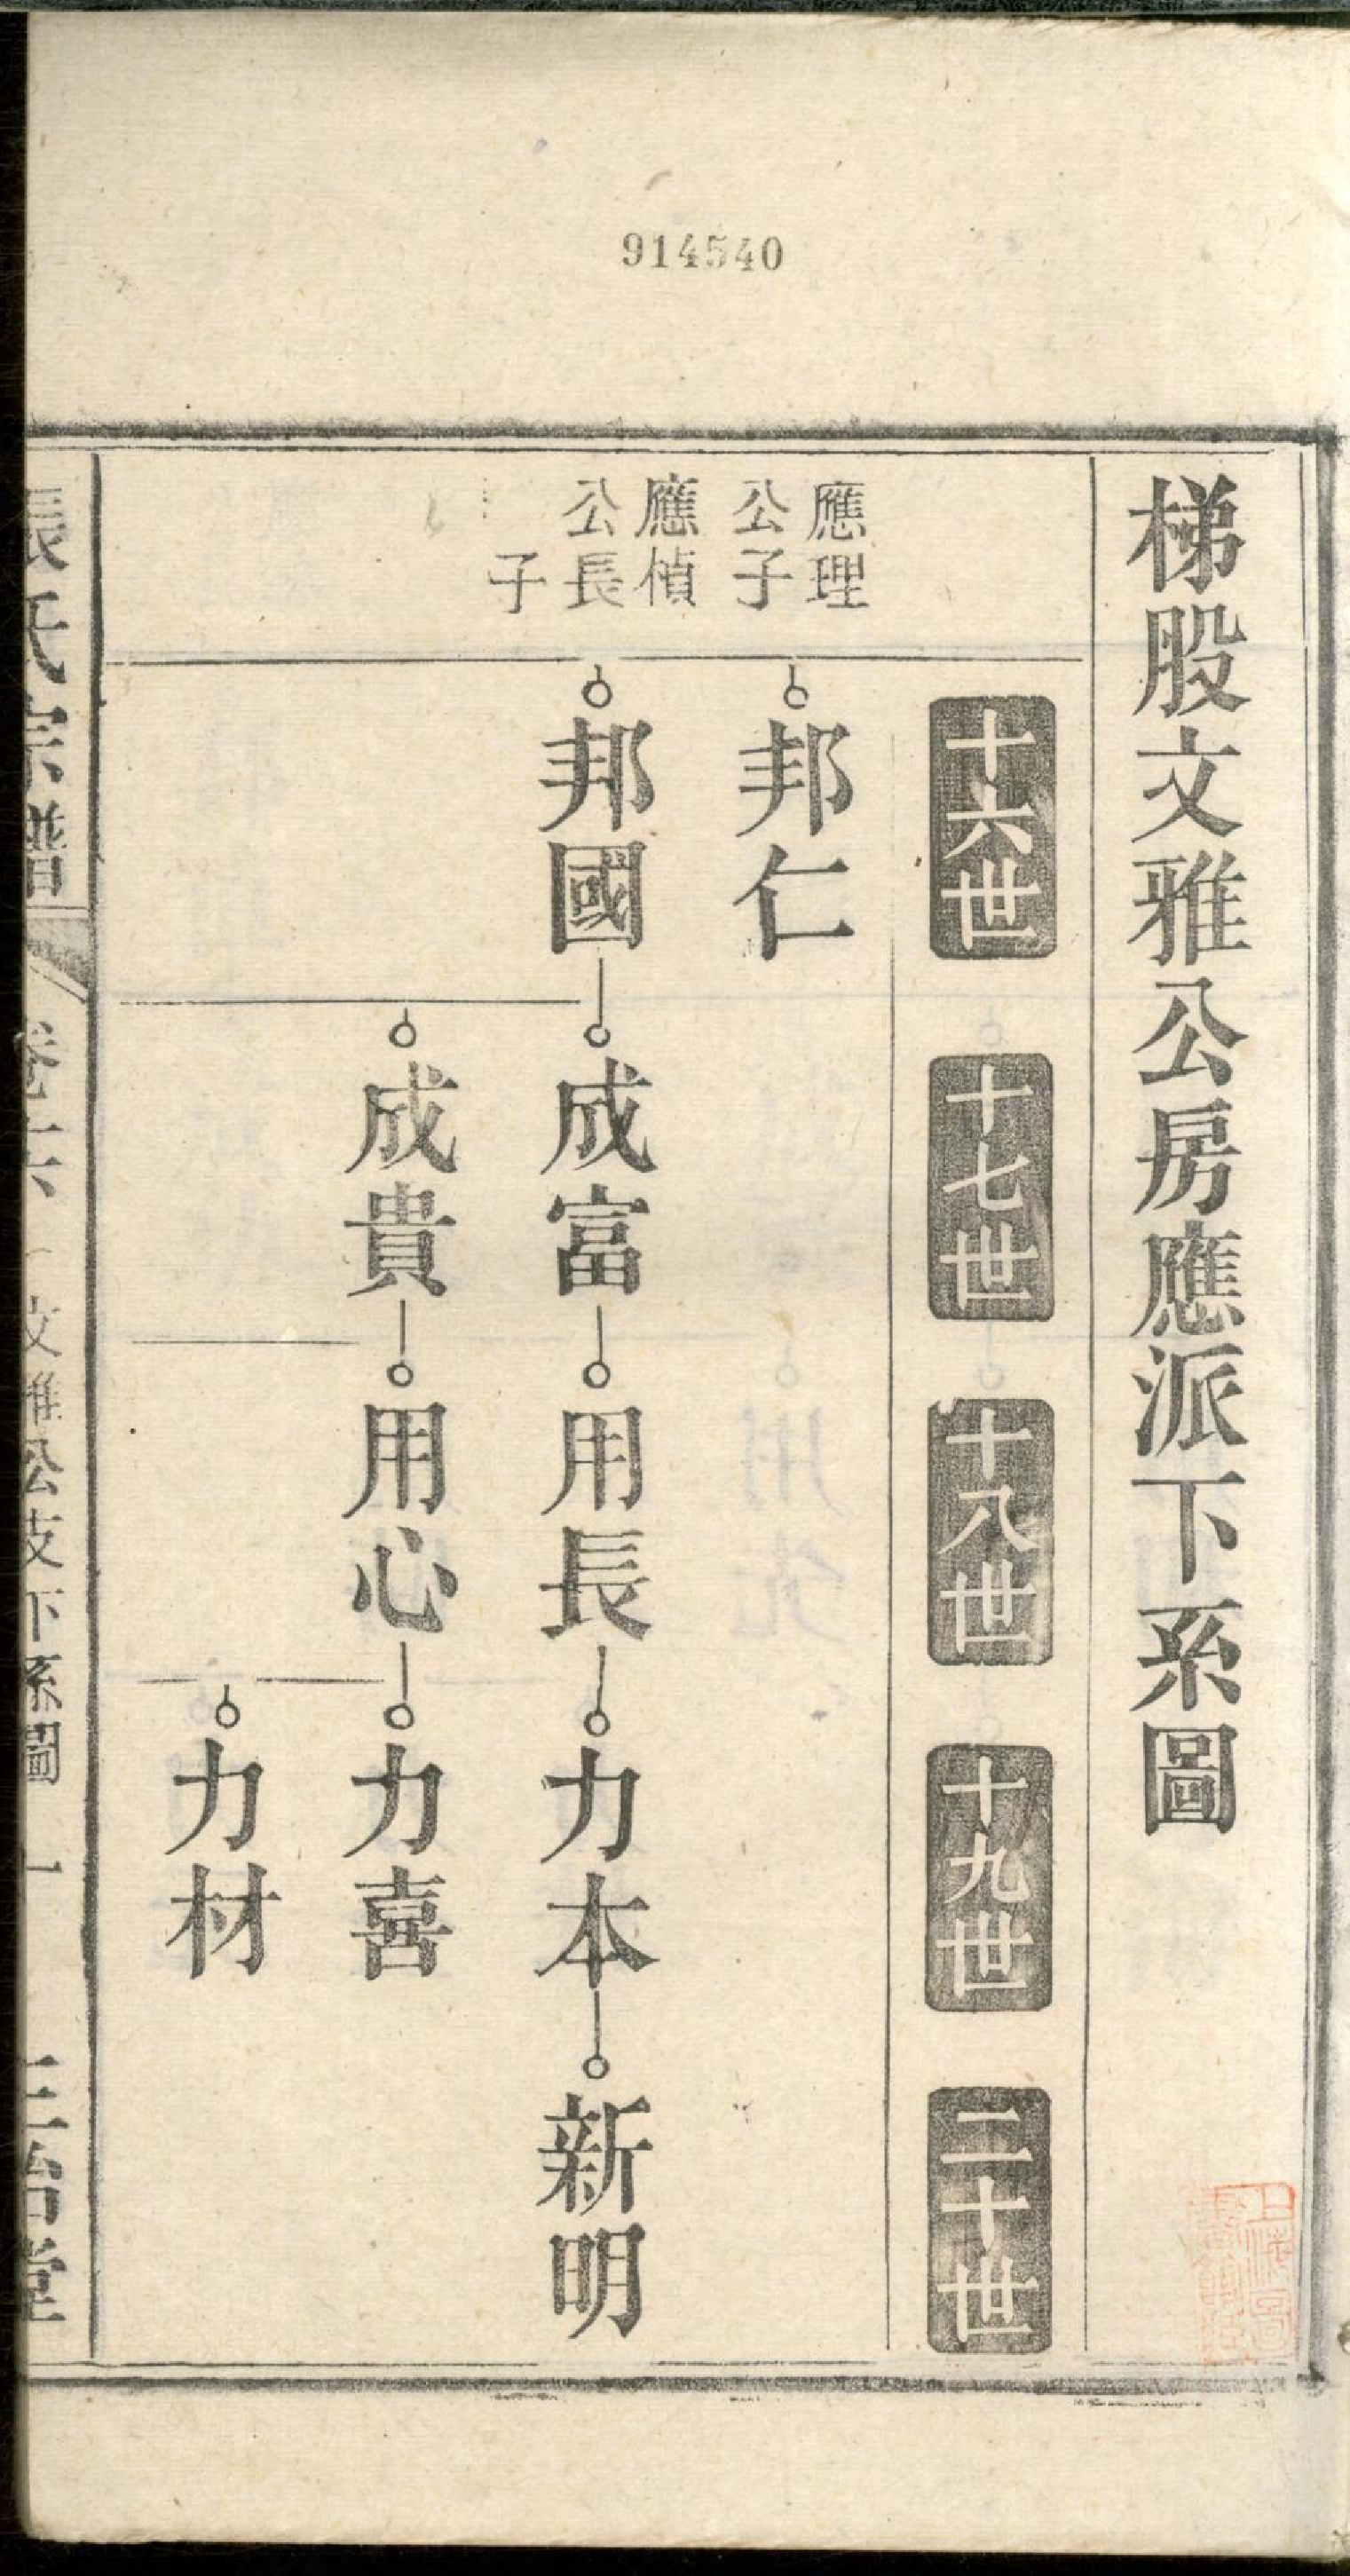 914540
梯股文雅公房應派下系圖
十六世
十七世
十八世
十九世
二十世
應理
公子
邦仁
應楨
公長
子
邦國
成富
用長
力本
新明
成貴
用心
力喜
力材
張氏宗譜
卷六
文雅公支下系圖
一
三治堂